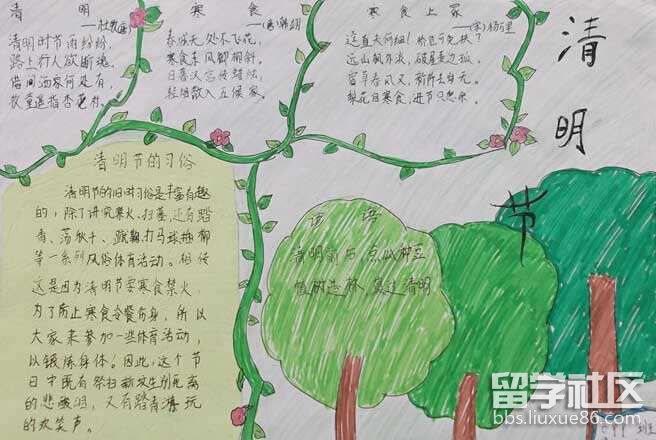 清明
——杜牧(唐)
清明时节雨纷纷,
路上行人欲断魂。
借问酒家何处有,
牧童遥指杏花村。
寒食
——(唐)韩翃
春城无处不飞花,
寒食东风御柳斜。
日暮汉宫传蜡烛,
轻烟散入五侯家。
寒食上冢
——(宋)杨万里
迳直夫何细!桥危可免扶?
远山枫外淡,破屋麦边孤。
宿草春风又,新阡去岁无。
梨花自寒食,进节只愁余。
清明节
清明节的习俗
清明节的旧时习俗是丰富有趣
的,除了讲究禁火、扫墓,还有踏
青、荡秋千、蹴鞠、打马球、插柳
等一系列风俗体育活动。相传
这是因为清明节要寒食禁火,
为了防止寒食冷餐伤身,所以
大家来参加一些体育活动,
以锻炼身体。因此,这个节
日中既有祭扫新坟生别死离
的悲酸泪,又有踏青游玩
的欢笑声。
谚语
清明前后,点瓜种豆
植树造林,莫过清明
班
留学社区
bbs.liuxue86.com